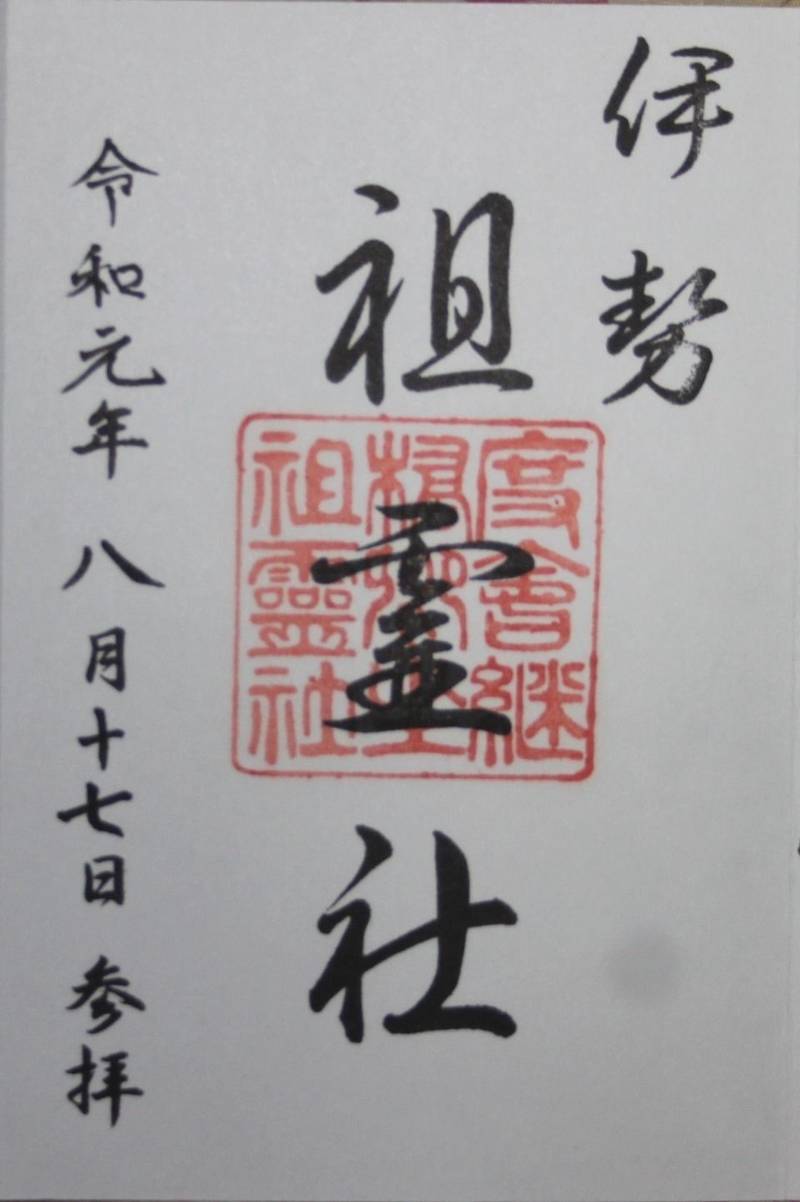 伊勢
祖霊社
度會継
祖靈社
令和元年 八月十七日 参拝